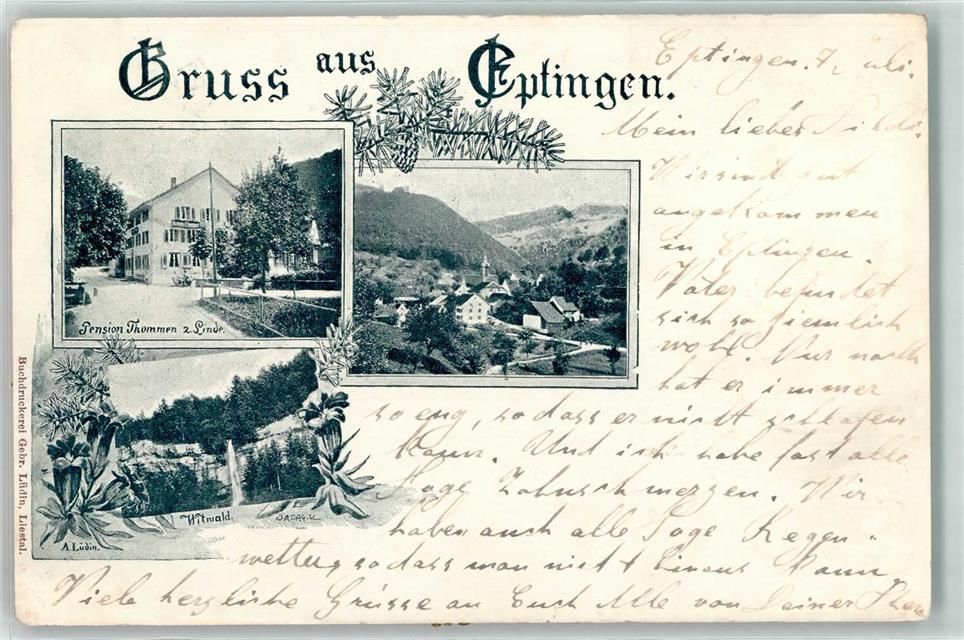 Gruss aus Eptingen.
Pension Thommen z. Linde.
Witwald.
A. Lüdin.
Buchdruckerei Gebr. Lüdin, Liestal.
Eptingen. 7. Juli.
Mein lieber
Wir sind gut
angekommen
in Eptingen.
Vater befindet
sich so ziemlich
wohl. Nur nachts
hat er immer
so eng, sodass er nicht schlafen
kann. Und ich habe fast alle
Tage Zahnschmerzen. Wir
haben auch alle Tage Regen-
wetter, sodass man nicht hinaus kann
Viele herzliche Grüsse an Euch Alle von Deiner